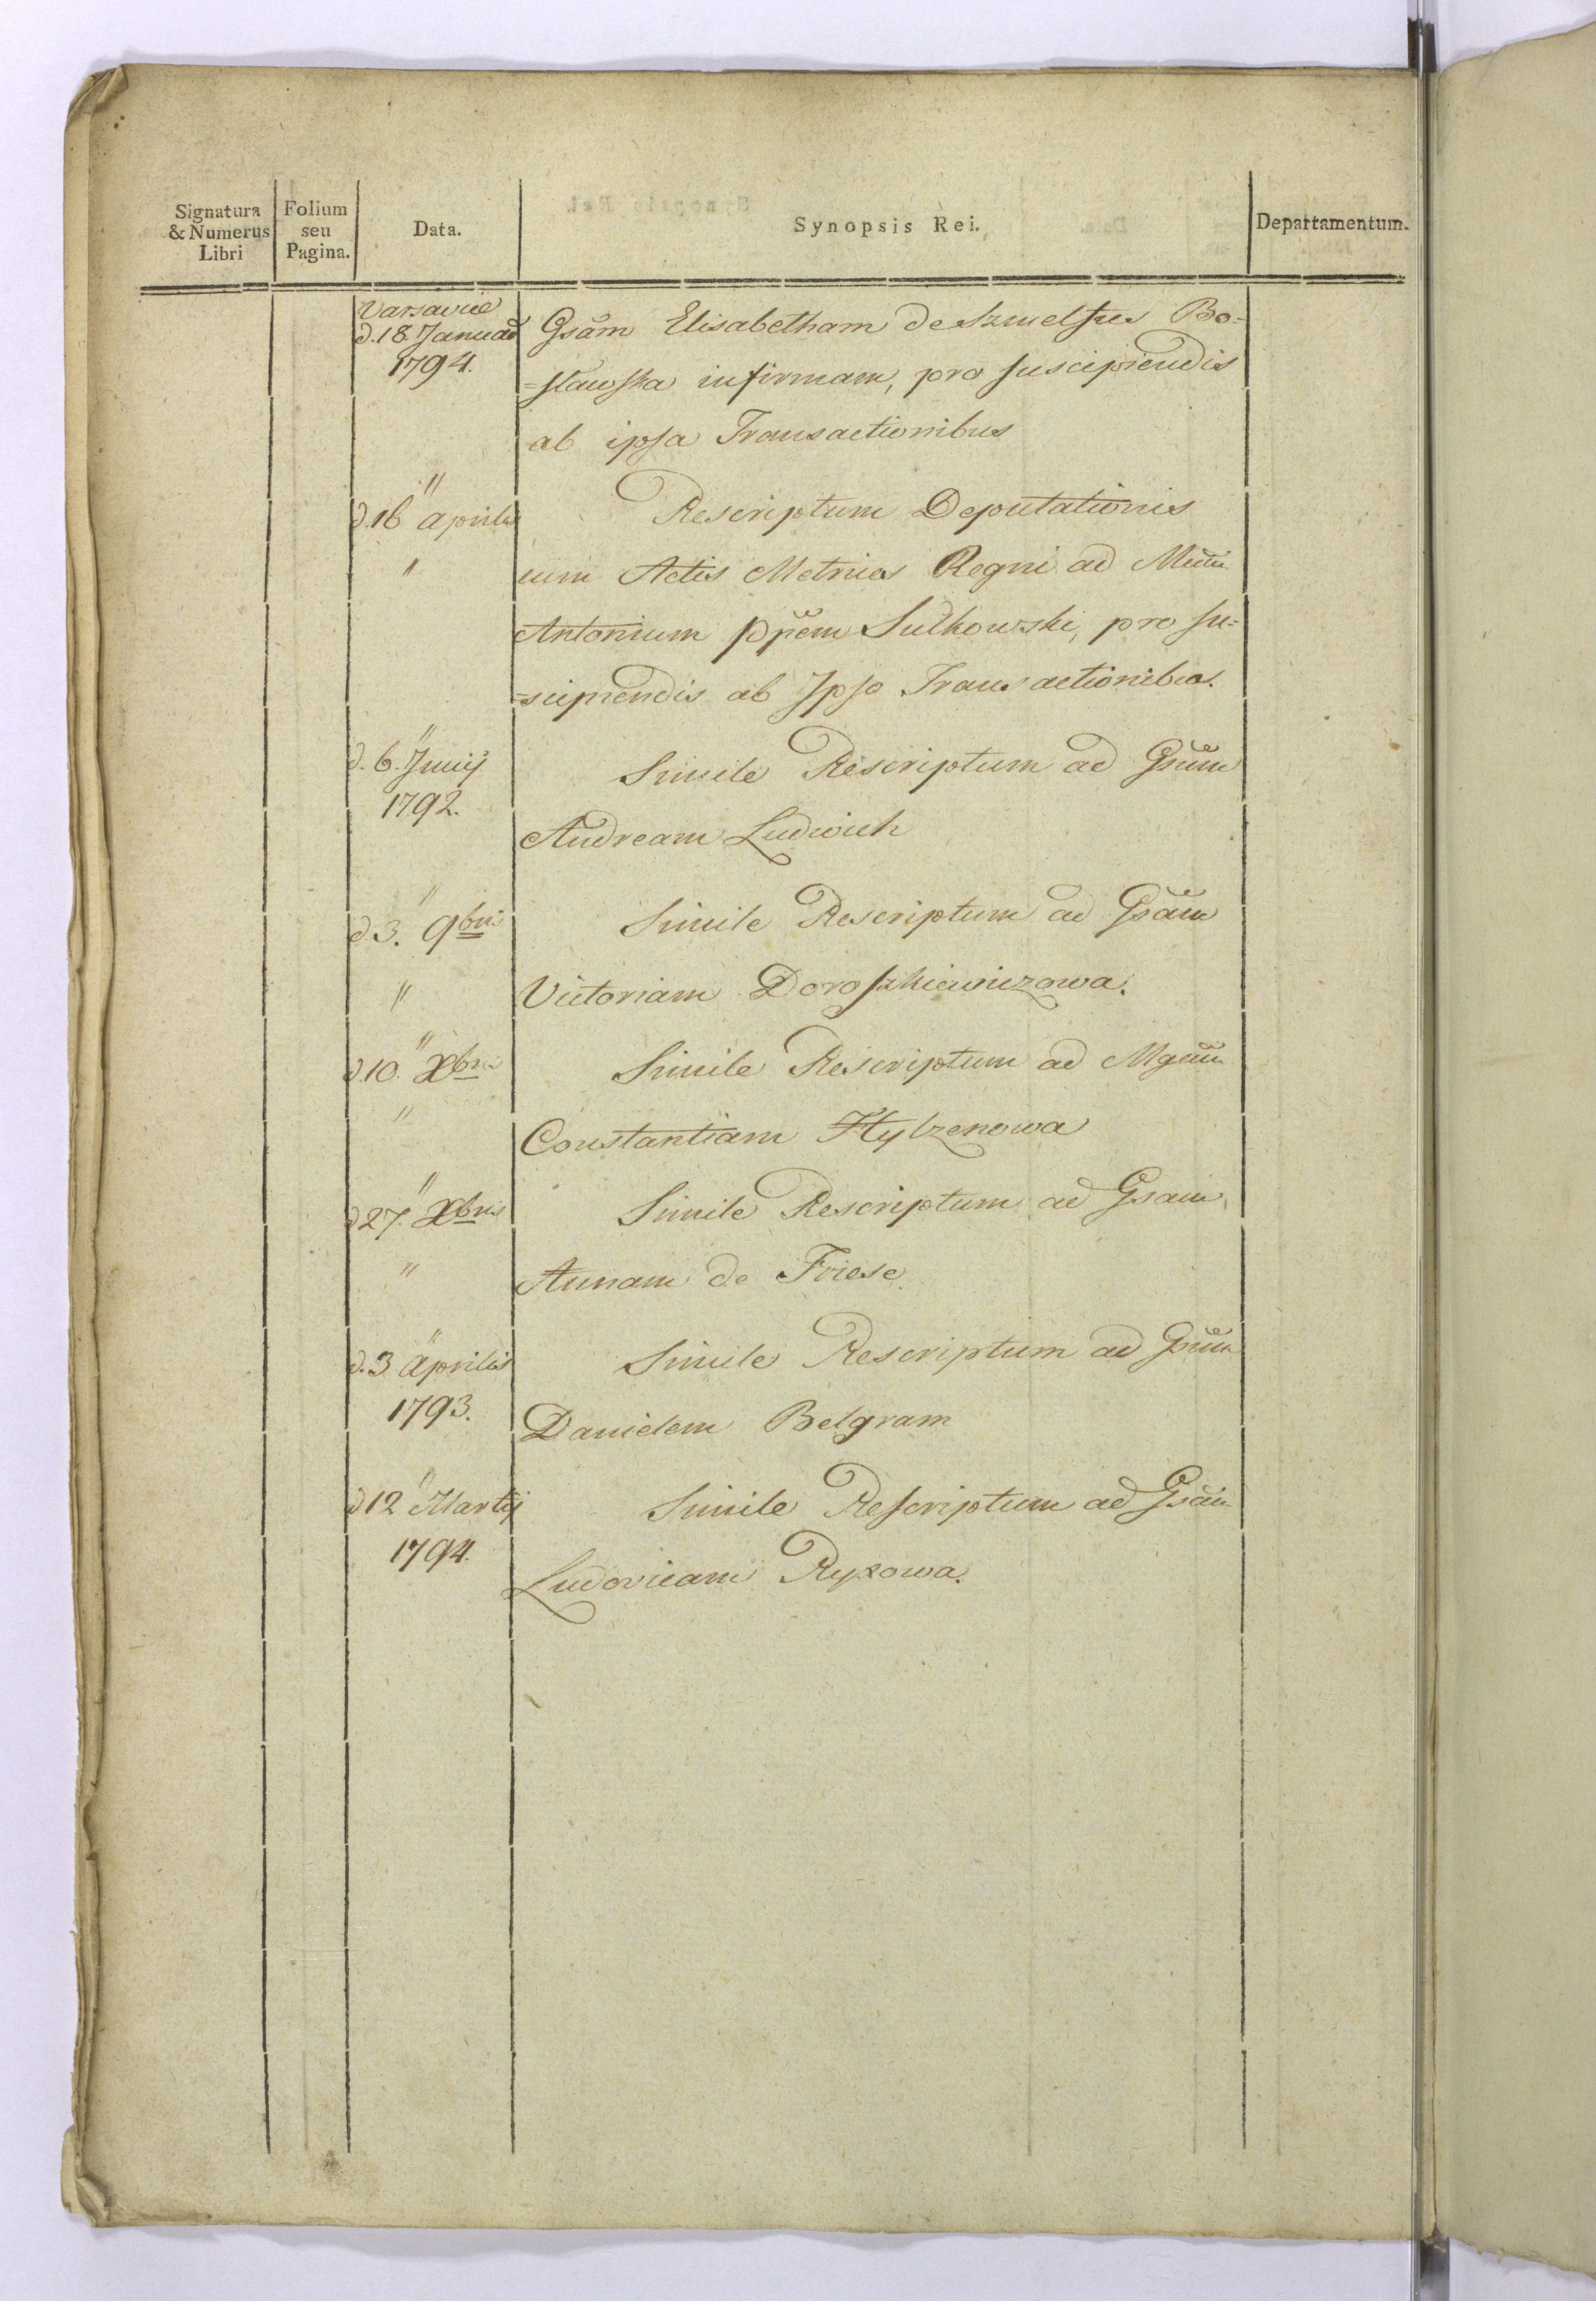 Signatura & Numerus Libri
Folium seu Pagina.
Data.
Synopsis Rei.
Departamentum.
Varsaviæ
d. 18. Januar
1794.
Gsam Elisabetham de Bo-
=sławska infirmam, pro suscipiendis
ab ipsa Transactionibus
"
d. 16 Aprilis
"
Rescriptum Deputationis
cum Actis Metrices Regni ad
Antonium Ppem Sulkowski, pro su=
=scipiendis ab Ipso Transactionibus.
"
d. 6. Junij
1792.
Simile Rescriptum ad Gsum
Andream Ludwich
"
d. 3. 9bris
"
Simile Rescriptum ad Gsam
Victoriam Doroszkiewiczowa.
"
d. 10. Xbris
"
Simile Rescriptum ad Mgam
Constantiam Hylzenowa
"
d 27. Xbris
"
Simile Rescriptum ad Gsam
Annam de Friese.
"
d. 3 Aprilis
1793.
Simile Rescriptum ad Gsum
Danielem Belgram
"
d 12 Martij
1794.
Simile Rescriptum ad Gsam
Ludovicam Ryxowa.